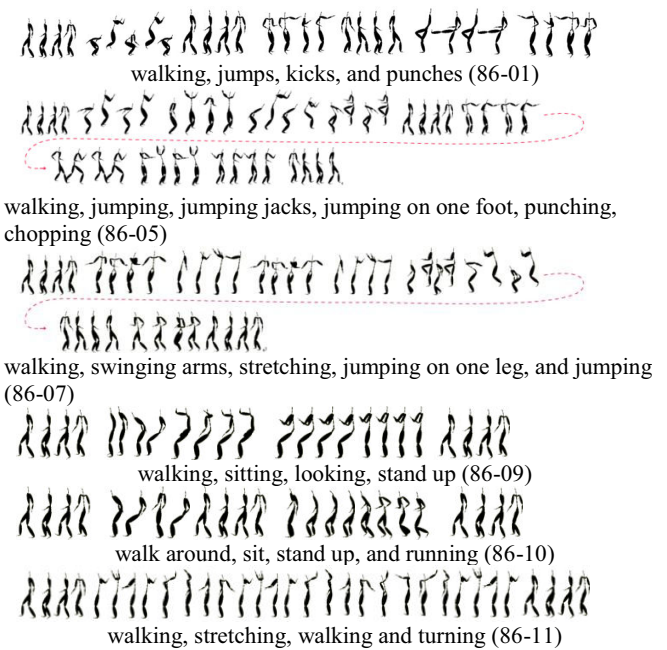 walking, jumps, kicks, and punches (86-01)
walking, jumping, jumping jacks, jumping on one foot, punching,
chopping (86-05)
walking, swinging arms, stretching, jumping on one leg, and jumping
(86-07)
walking, sitting, looking, stand up (86-09)
walk around, sit, stand up, and running (86-10)
walking, stretching, walking and turning (86-11)